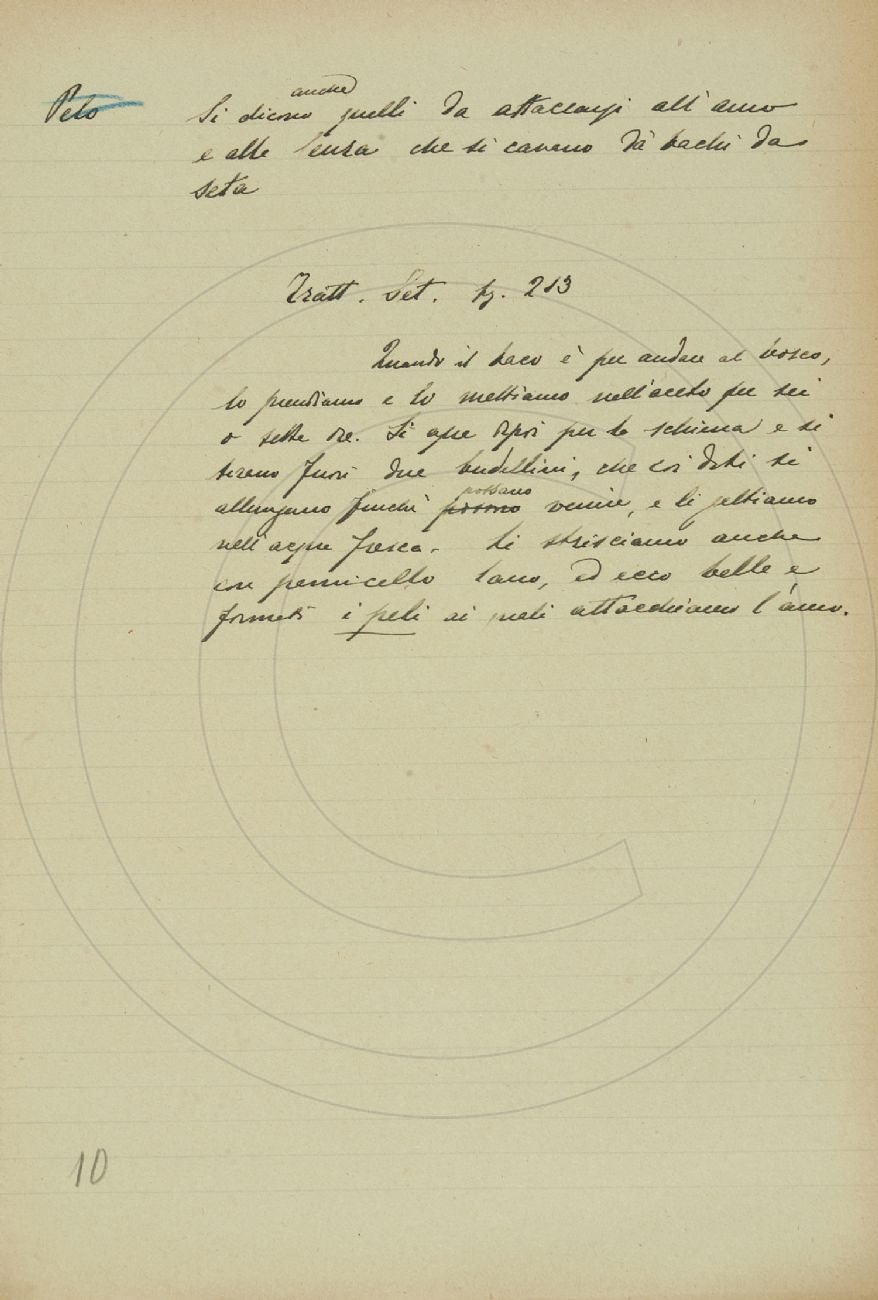 Pelo
anche
Si dicono quelli da attaccarsi all'amo
e alla lenza che si cavano da' bachi da
seta
Tratt. Set. pg. 213
Quando il baco è per andare al bosco,
lo prendiamo e lo mettiamo nell'aceto per sei
o sette ore. Si apre dopoi per la schiena e si
tirano fuori due budellini, che così doti si
allungano finchè possono possano venire, e li gettiamo
nell'acqua fresca. Li strisciamo anche
con pannicello lano, ed ecco belle e
formati i peli ai quali attacchiamo l'amo.
10